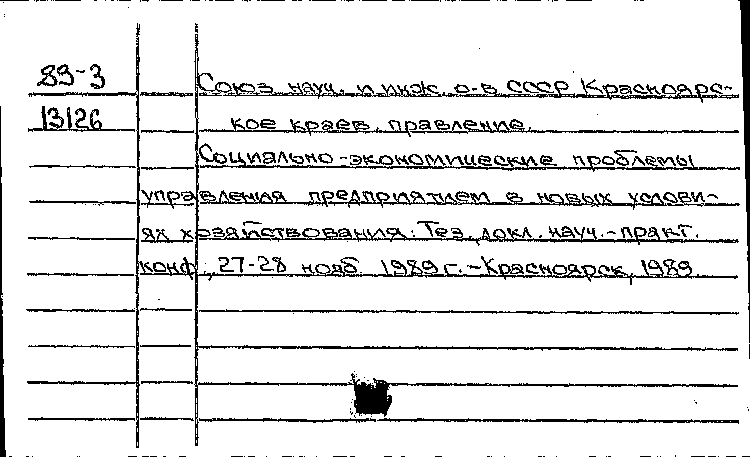 89-3
Союз науч. и инж. о-в СССР Красноярс-
13126
кое краев. правление.
Социально-экономические проблемы
управления предприятием в новых услови-
ях хозяйствования: Тез. докл. науч.-практ.
конф., 27-28 нояб. 1989 г. - Красноярск, 1989.